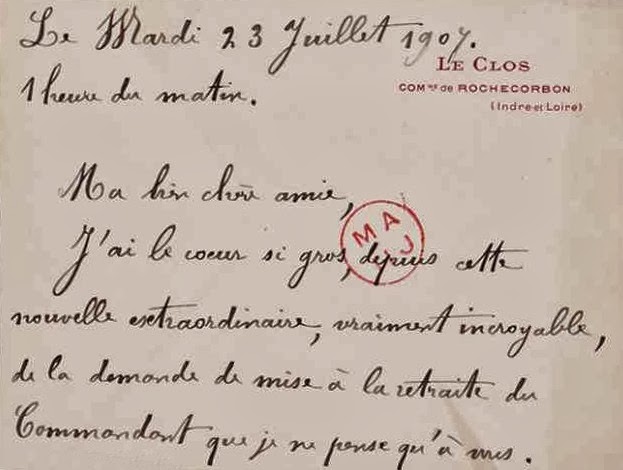 Le Mardi 23 Juillet 1907.
LE CLOS
COMNE de ROCHECORBON
(Indre et Loire)
1 heure du matin.
Ma bien chère amie,
MAJ
J'ai le coeur si gros, depuis cette
nouvelle extraordinaire, vraiment incroyable,
de la demande de mise à la retraite du
Commandant que je ne pense qu'à